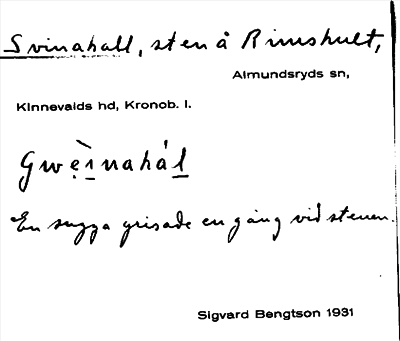 Svinahall, sten å Rimshult,
Almundsryds sn,
Kinnevalds hd, Kronob. l.
Gwẹ̀inahál
En sugga grisade en gång vid stenen.
Sigvard Bengtson 1931